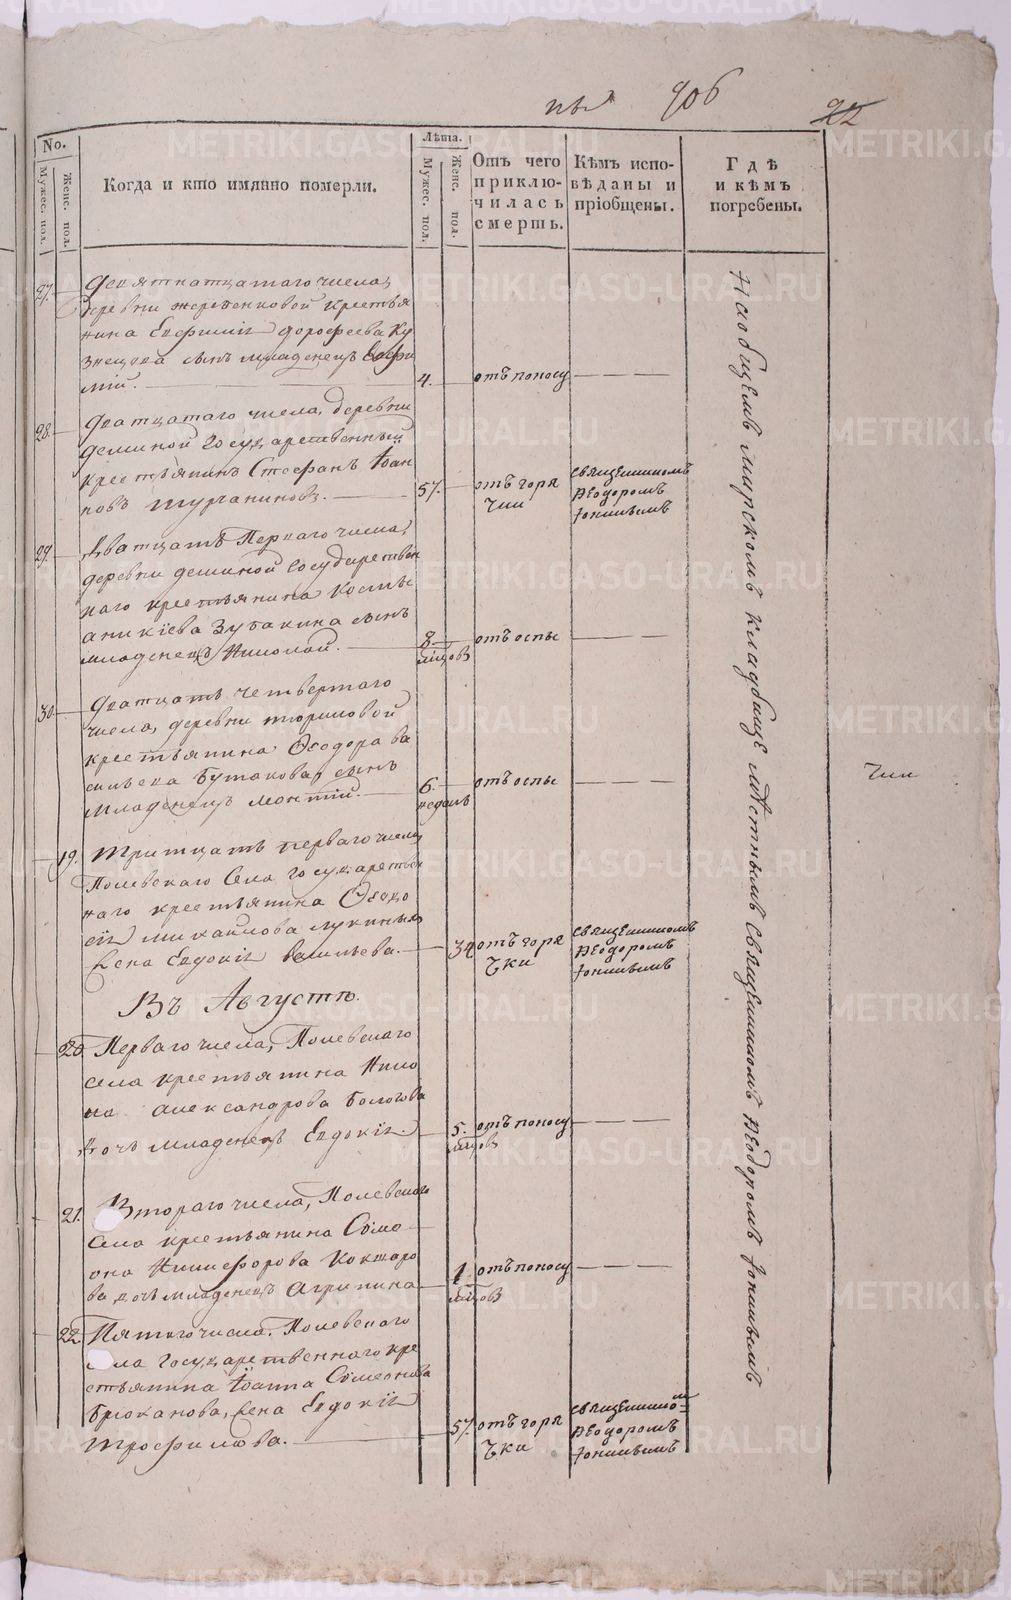 906
22
No.
Мужес. пол.
Женс. пол.
Когда и кто имянно померли.
Лѣта.
Мужес. пол.
Женс. пол.
Отъ чего
приклю-
чилась
смерть.
Кѣмъ испо-
вѣданы и
пріобщены.
Гдѣ
и кѣмъ
погребены.
27.
Девятнатцатаго числа,
деревни жеребенковой крестья
нина Евфимія дорофеева Ку
знецова сынъ младенецъ Евфи
мій.
4.
отъ поносу
28.
Дватцатаго числа, деревни
деминой государственный
крестьянинъ Стефанъ Іоан
новъ Турчаниновъ.
57.
отъ горя
чки
священникомъ
Ѳеодоромъ
29.
Дватцать Перваго числа,
деревни деминой государствен
наго крестьянина Космы
аникіева Зубакина сынъ
младенецъ Николай.
8
мцовъ
отъ оспы
30.
Дватцать четвертаго
числа, деревни
крестьянина Ѳеодора ва
сильева Бутакова, сынъ
младенецъ
6.
недель
отъ оспы
19.
Тритцать перваго числа,
Полевскаго Села государствен
наго крестьянина Ѳеодо
сія михайлова лукиныхъ
жена Евдокія васильева.
34
отъ горя
чки
священникомъ
Ѳеодоромъ
Въ Августѣ.
20.
Перваго числа, Полевскаго
села крестьянина Нико
ла александрова Бологова
дочь младенецъ Евдокія.
5.
мцовъ
отъ поносу
21.
Втораго числа, Полевскаго
села крестьянина Симе
она Никифорова Кокшаро
ва дочь младенецъ Агрипина
1
мцовъ
отъ поносу
22.
Пятаго числа, Полевскаго
села государственнаго кре
стьянина Іоанна Симеонова
Брюханова, жена Евдокія
Трофимова.
57.
отъ горя
чки
священникомъ
Ѳеодоромъ
На общемъ мирскомъ кладбище мѣстнымъ священникомъ Ѳеодоромъ
чки
METRIKI.GASO-URAL.RU